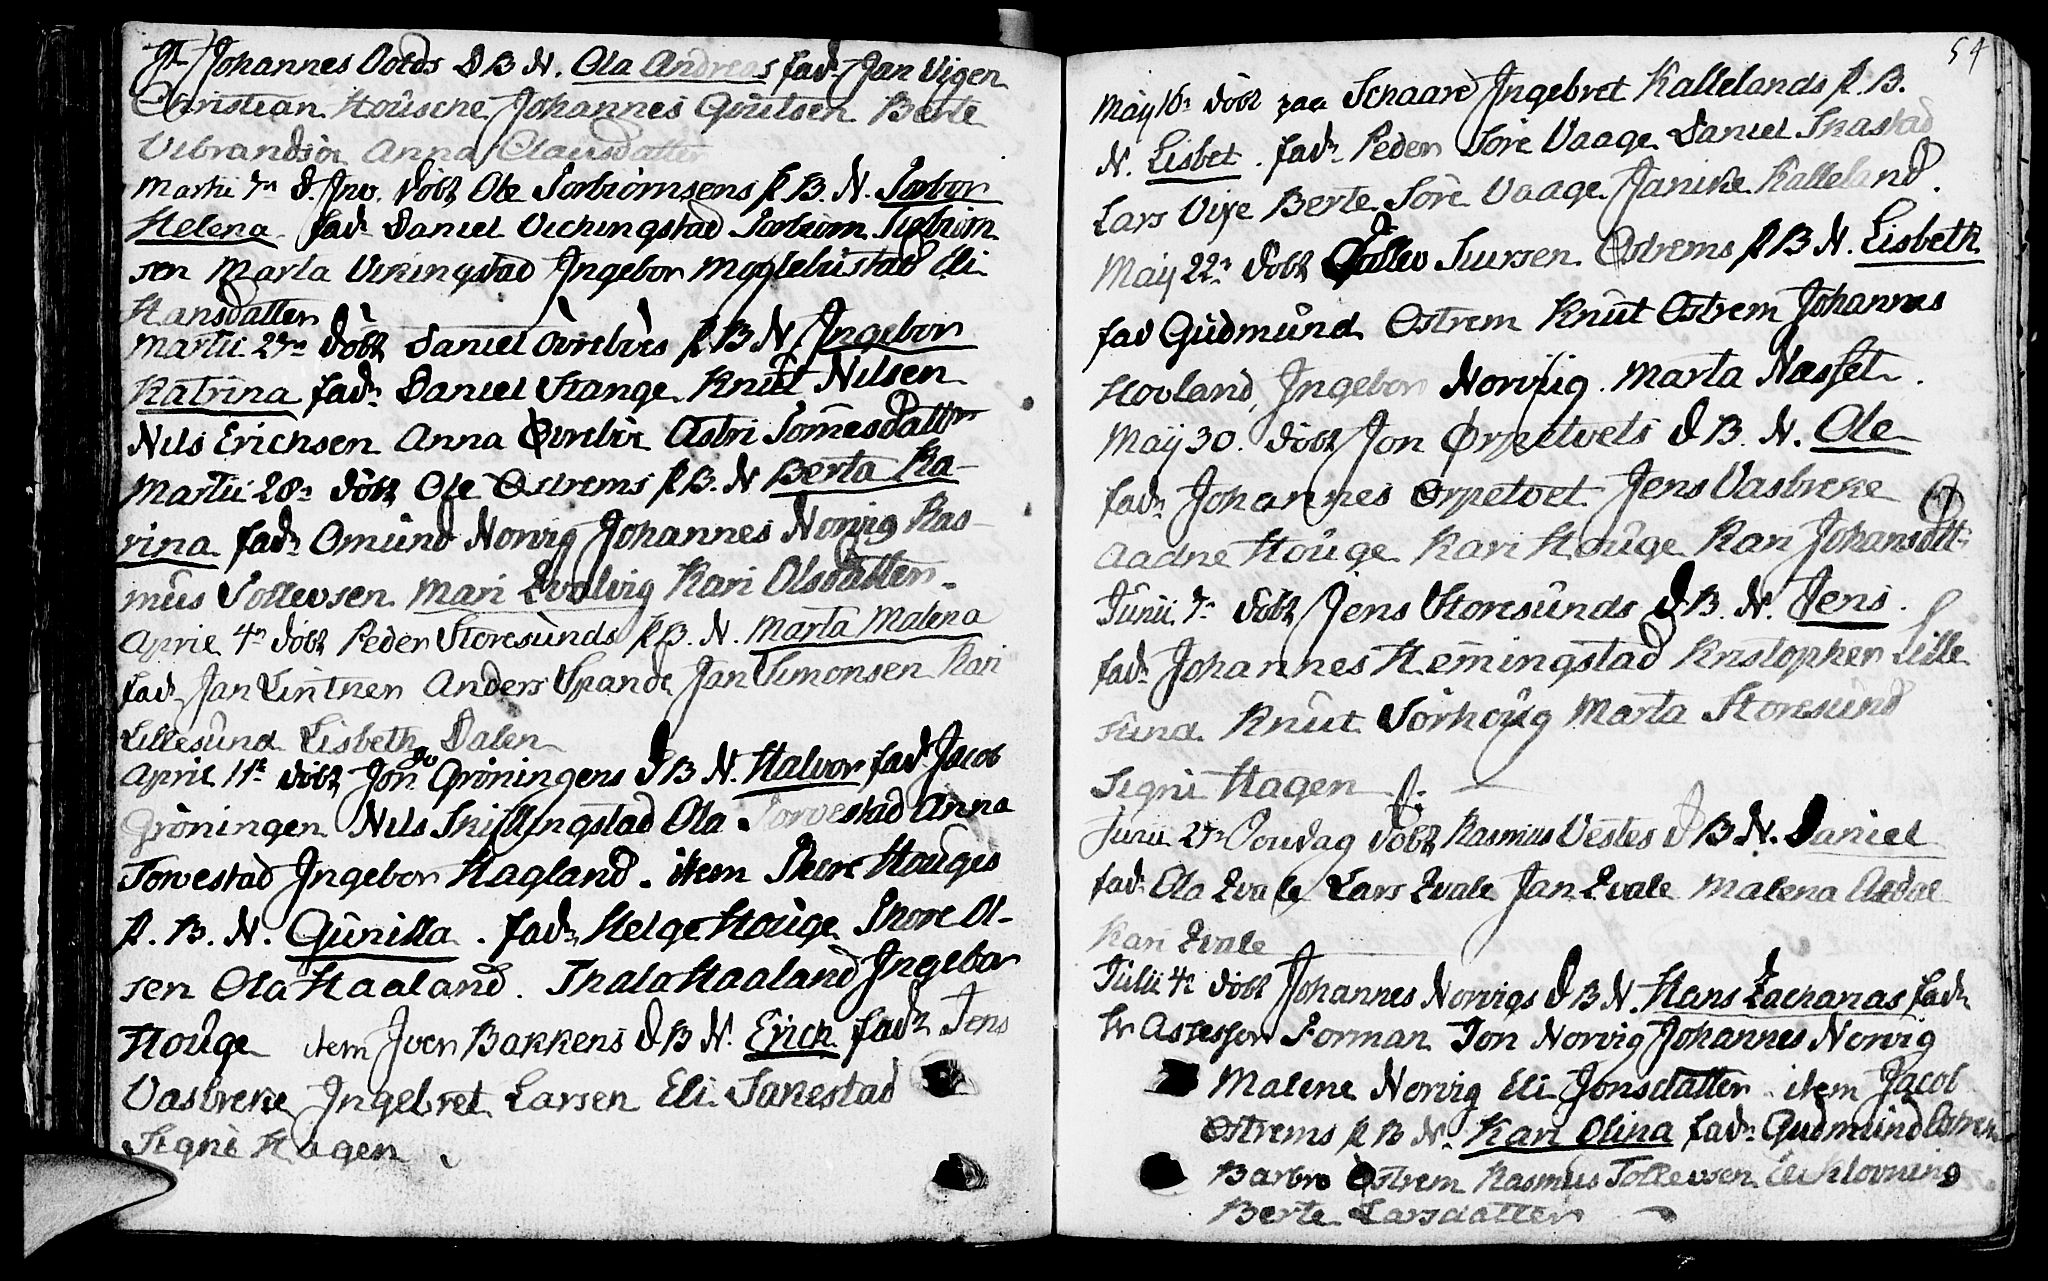 Johannes Dolds D B N. Ola Andreas fad. Jan Vigen
Christian Housche Johannes Giütsen Berte
Vibrandsön Anna Clausdatter
Martii 7n D. Inv. döbt Ole Torbiörnsens P. B. N. Torbor
Helena. fad. Daniel Vichingstad Torbiorn Sigbiörn
sen Marta Vikingstad Ingebor Myglebustad Eli
Hansdatter
Martii 27n döbt Daniel Övreböes P B N Ingebor
Katrina fadr Daniel Stange Knut Nilsen
Nils Erichsen Anna Övreböe Astri Tomesdatter
Martii 28n döbt Ole Ostrems P B. N Berta Ka-
rina fadr Omund Norvig Johannes Norvig Ras-
mus Tollevsen Mari Evalvig Kari Olsdatter
April 4n döbt Peder Storesunds P. B. N. Marta Malena
fad. Jan Lintner Anders Skande Jan Simonsen Kari
Lillesund Lisbeth Dalen
April 11t döbt Jon Gröningens D B N. Halvor fad. Jacob
Gröningen Nils Skillingstad Ola Torvestad Anna
Torvestad Ingebor Hagland. item Thore Houges
P. B. N. Gunilla. fadr Helge Houge Thore Ol-
sen Ola Haaland. Thala Haaland Ingebor
Houge item Iver Bakkens D B N. Erich fadr Jens
Vasbreke Ingebret Larsen Eli Sakestad
Signi Hagen
54
Maij 16n döbt paa Schaare Ingebret Kallelands P. B.
N. Lisbet. fadr Peder Söre Vaage Daniel Skastad
Lars Vixe Berte Söre Vaage Janike Kalleland.
Maij 22n döbt Tollev Siursen Ostrems P B N. Lisbeth
fad Gudmund Ostrem Knut Ostrem Johannes
Hovland, Ingebor Norvig. Marta Næsset.
Maij 30. döbt Jon Örpetvets D B. N. Ole
fadr Johannes Örpetvet Jens Vasbreke
Aadne Houge Kari Houge Kari Johansdtt:
Junii 7n döbt Jens Storesunds D B. N. Jens.
fadr Johannes Hemingstad Kristopher Lille
sund Knut Sörhoug Marta Storesund
Signi Hagen
Junii 27n Söndag döbt Rasmus Vestes D B N. Daniel
fadr Ola Evale Lars Evale Jan Evale Malena Aadal
Kari Evale
Julii 4n döbt Johannes Norvigs D B N. Hans Zacharias fadr
Hr Assessor Forman Jon Norvig Johannes Norvig
Malene Norvig Eli Jonsdatter. item Jacob
Ostrems P B N. Kari Olina fadr Gudmund Ostrem
Barbro Ostrem Rasmus Tollevsen Eli Klovning
Berte Larsdatter